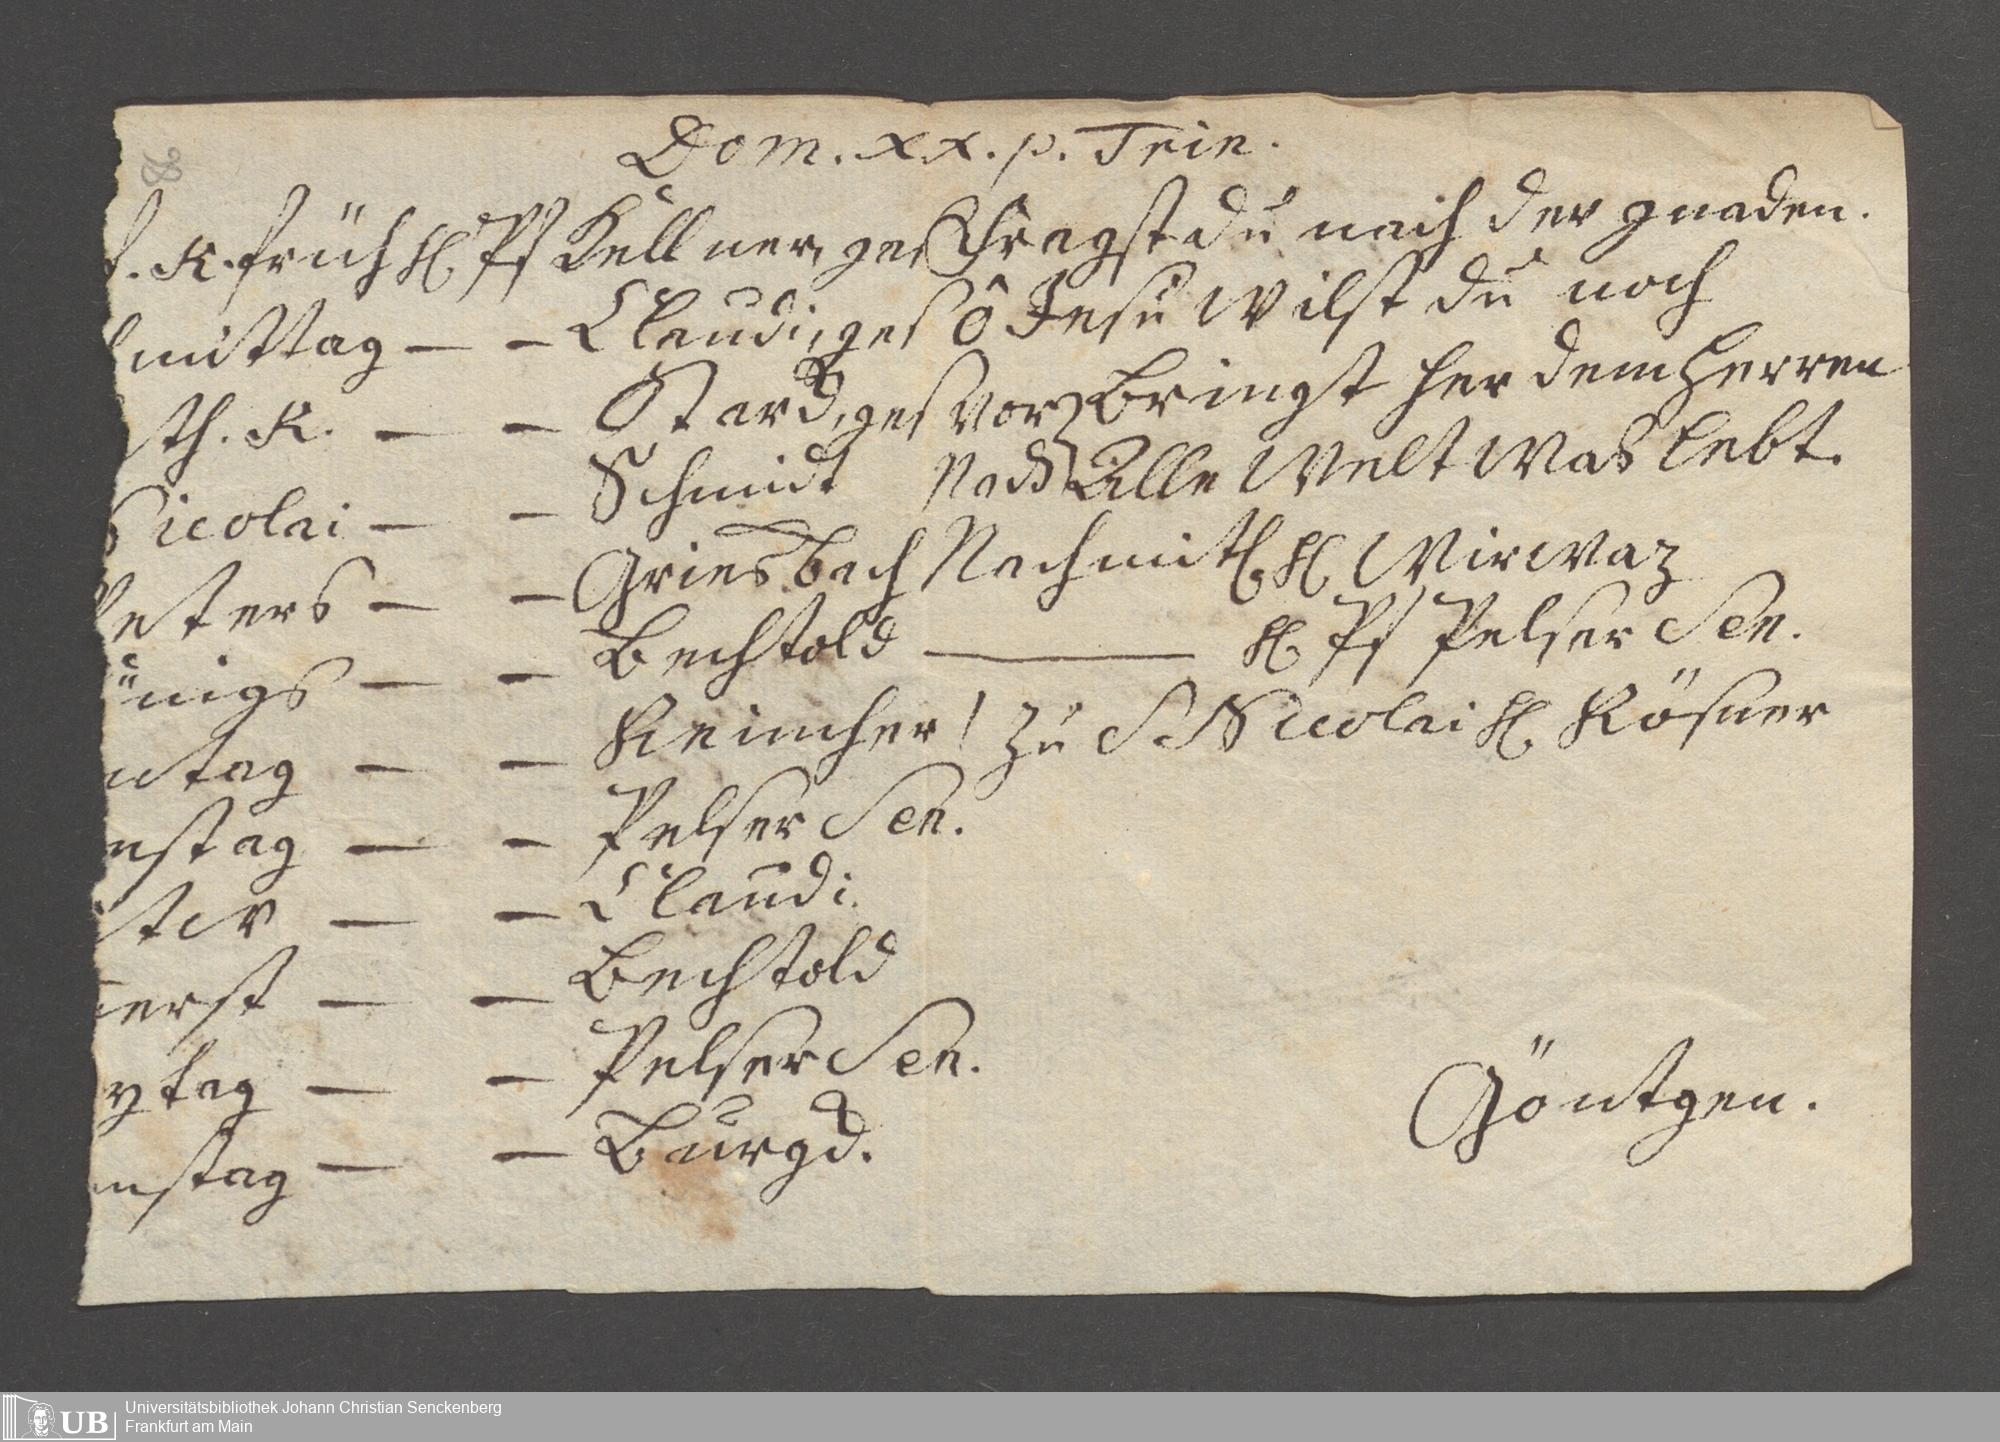 Dom. XX. p. Trin.
f. K. früh H. Pf Kellner, ges Fragst du nach der gnaden.
mittag — — Claudi, ges O Jesu Wilst du noch
th. K. — — Starck, ges Vor Bringt her dem Herren
Nicolai — — Schmidt Nach Alle Welt Was lebt.
Peters — — Griesbach Nachmitt H. Wirwaz
önigs — — Bechtold — H. Pf Pelser Sen.
ntag — — Reimher / Zu S. Nicolai H. Rösner
nstag — — Pelser Sen.
ter — — Claudi.
erst — — Bechtold
ytag — — Pelser Sen.
mstag — — Burgd.
Göntgen.
UB
Universitätsbibliothek Johann Christian Senckenberg
Frankfurt am Main